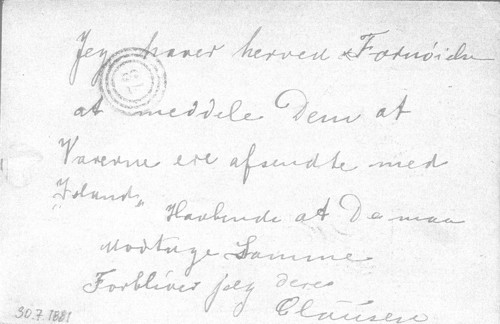 Jeg haver herved Fornøielse
788
at meddele Dem at
Varerne ere afsendte med
"Island" Haabende at De maa
modtage Samme
Forbliver jeg deres
Clausen
30.7 1881